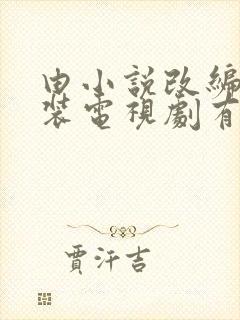 由小說改編
裝電視劇有
賈汗吉